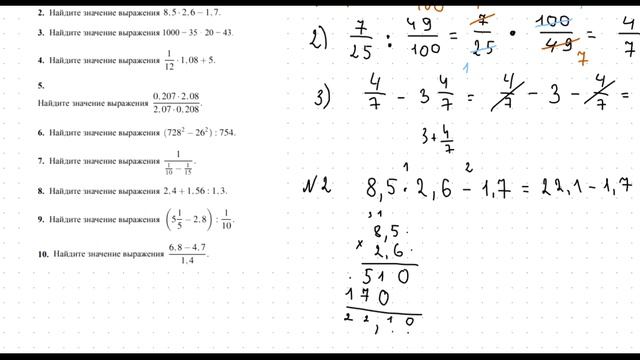 2. Найдите значение выражения 8.5 · 2.6 − 1.7.
3. Найдите значение выражения 1000 − 35 · 20 − 43.
4. Найдите значение выражения 1/12 · 1.08 + 5.
5.
Найдите значение выражения 0.207 · 2.08 / 2.07 · 0.208.
6. Найдите значение выражения (728² − 26²) : 754.
7. Найдите значение выражения 1 / (1/10 − 1/15).
8. Найдите значение выражения 2.4 + 1.56 : 1.3.
9. Найдите значение выражения (5 1/5 − 2.8) : 1/10.
10. Найдите значение выражения 6.8 − 4.7 / 1.4.
2) 7/25 : 49/100 = 7/25 · 100/49 = 4/7
1 7
3) 4/7 − 3 4/7 = 4/7 − 3 − 4/7 =
3 + 4/7
1 2
N2 8,5 · 2,6 − 1,7 = 22,1 − 1,7
3 1
8,5
× 2,6
510
170
22,10